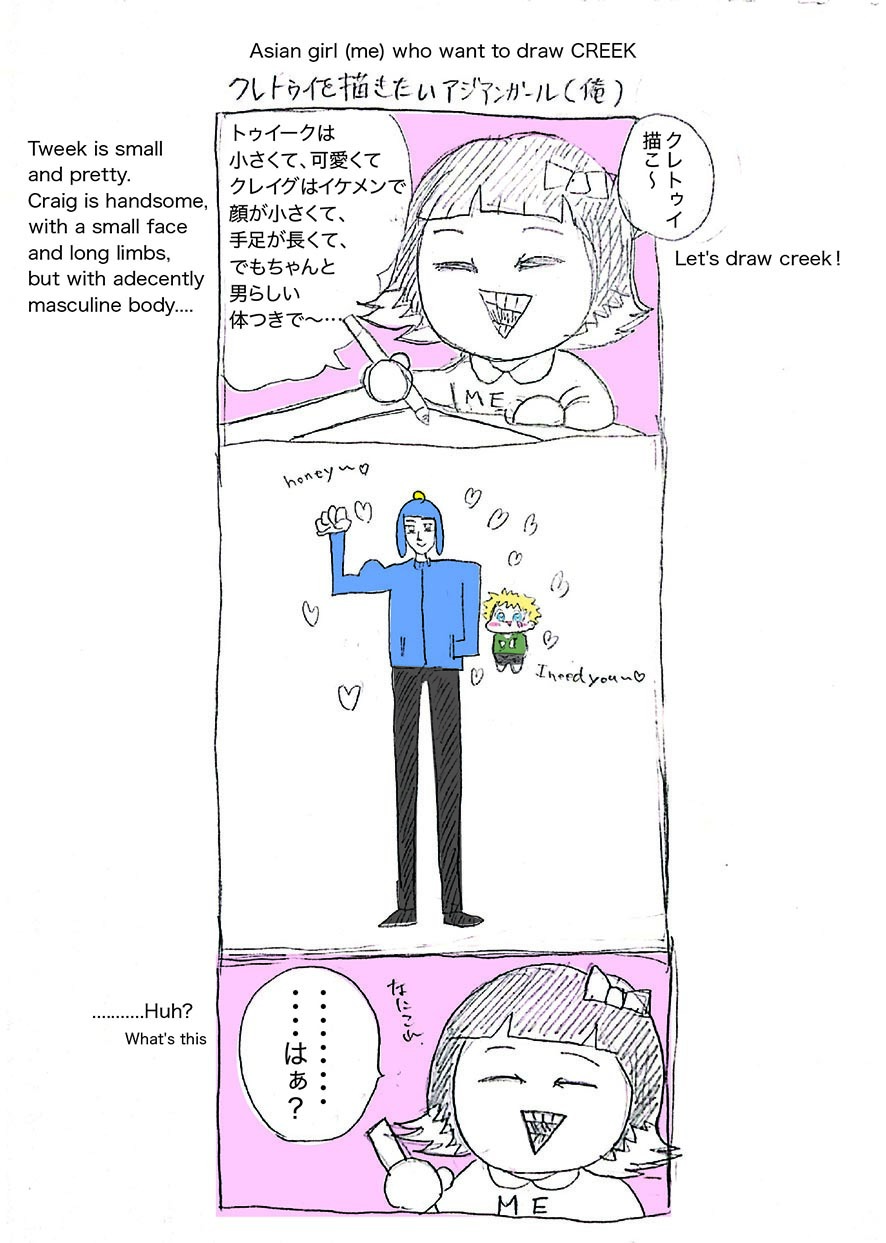 Asian girl (me) who want to draw CREEK
クレトゥイを描きたいアジアンガール(俺)
クレトゥイ
描こ〜
Let's draw creek!
トゥイークは
小さくて、可愛くて
クレイグはイケメンで
顔が小さくて、
手足が長くて、
でもちゃんと
男らしい
体つきで〜…
Tweek is small
and pretty.
Craig is handsome,
with a small face
and long limbs,
but with adecently
masculine body....
ME
honey〜♡
I need you〜♡
なにこれ
…………
……はぁ?
...........Huh?
What's this
ME